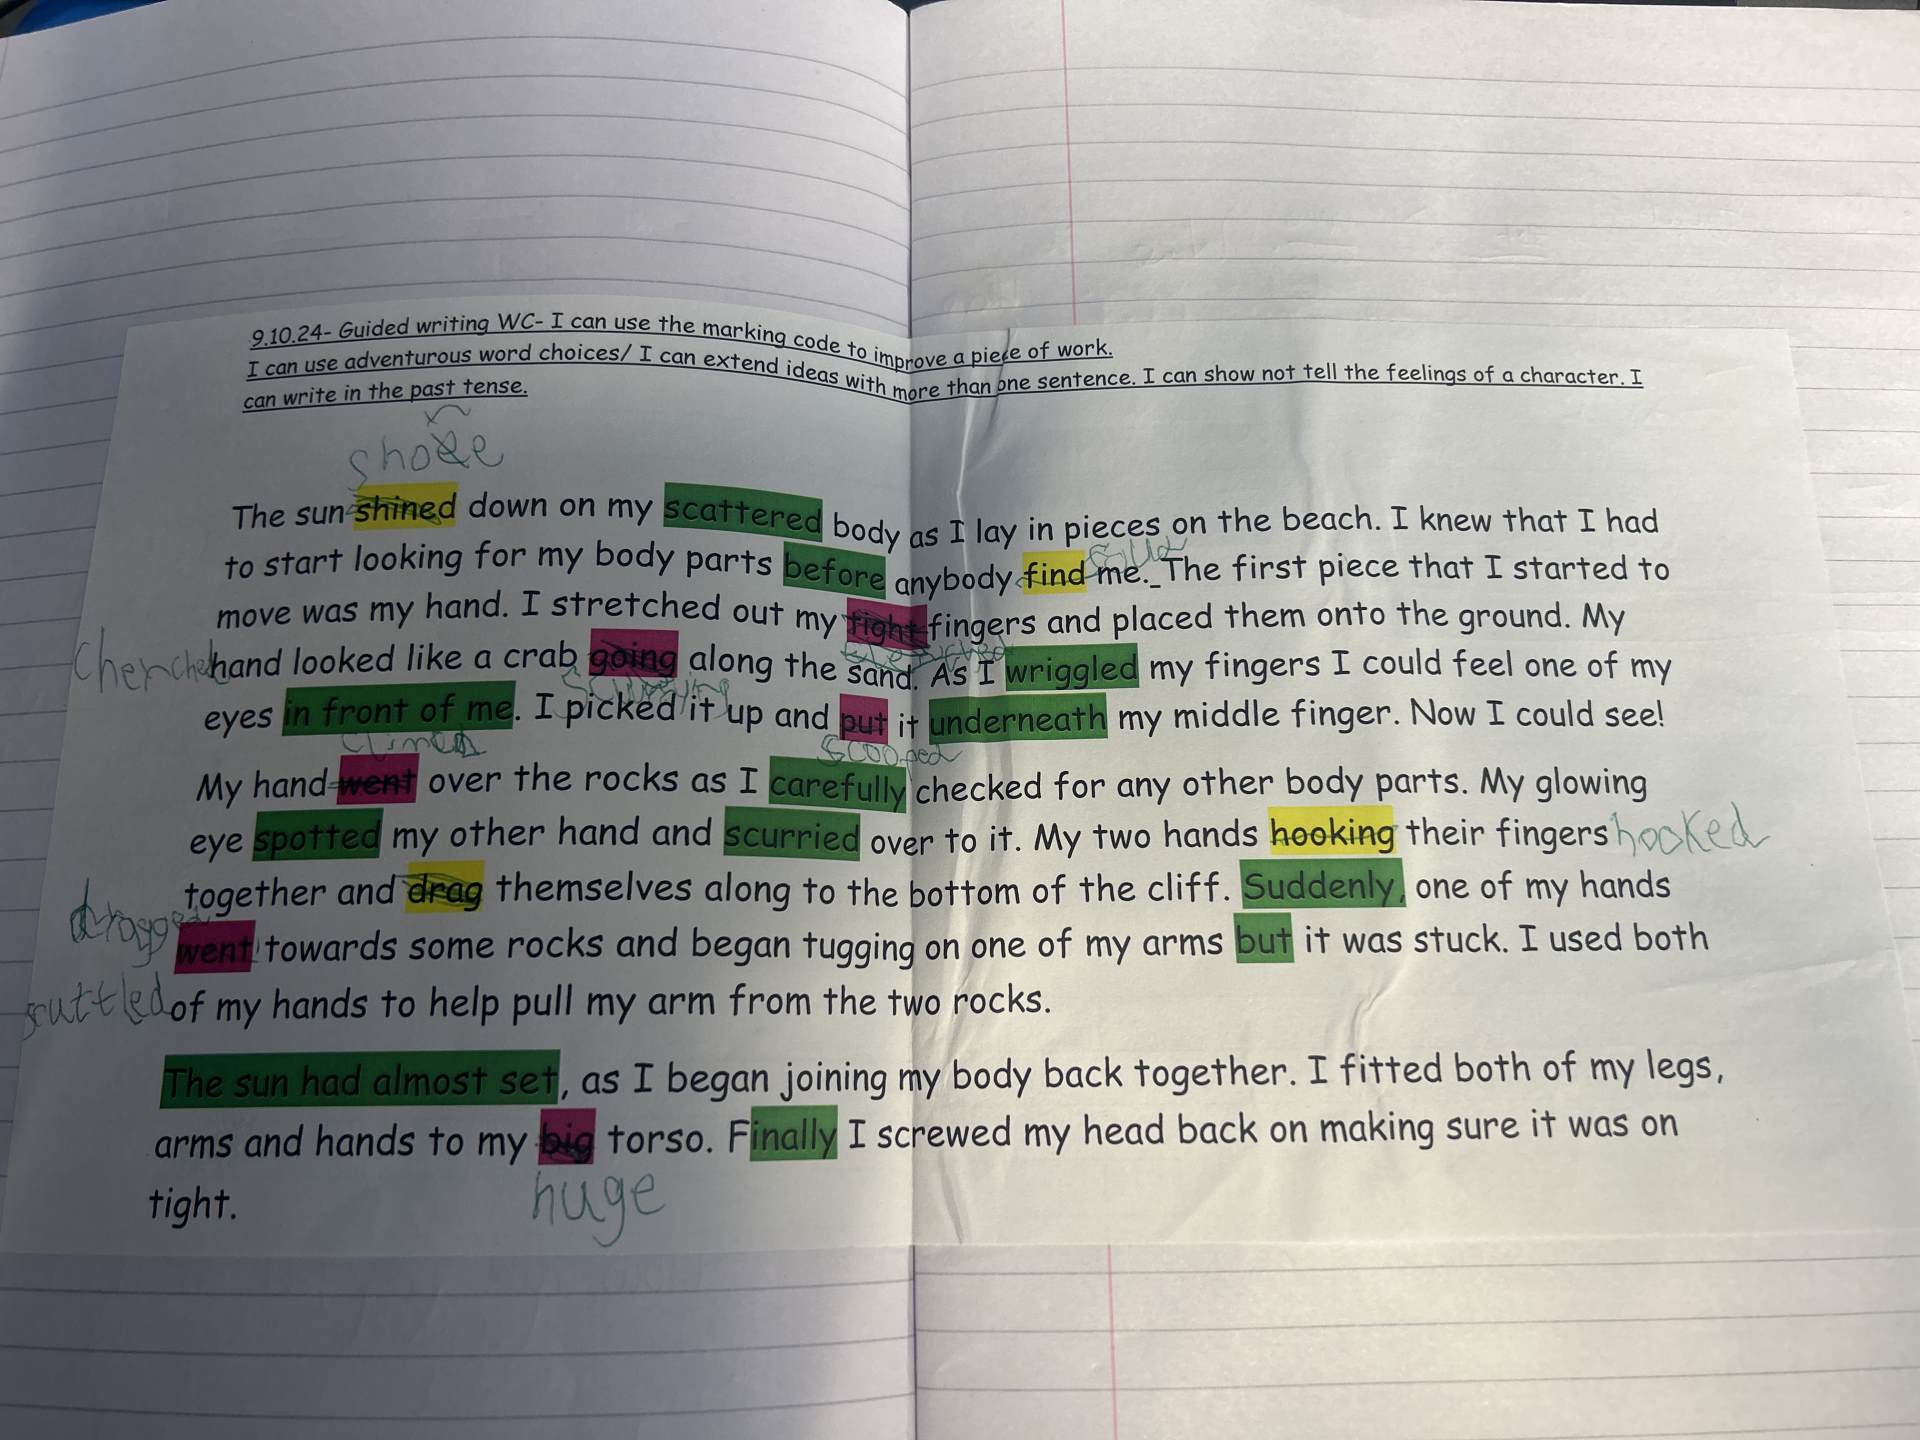 9.10.24- Guided writing WC- I can use the marking code to improve a piece of work.
I can use adventurous word choices/ I can extend ideas with more than one sentence. I can show not tell the feelings of a character. I
can write in the past tense.
The sun shined down on my scattered body as I lay in pieces on the beach. I knew that I had
to start looking for my body parts before anybody find me. The first piece that I started to
move was my hand. I stretched out my tight fingers and placed them onto the ground. My
hand looked like a crab going along the sand. As I wriggled my fingers I could feel one of my
eyes in front of me. I picked it up and put it underneath my middle finger. Now I could see!
scooped
My hand went over the rocks as I carefully checked for any other body parts. My glowing
eye spotted my other hand and scurried over to it. My two hands hooking their fingers hooked
together and drag themselves along to the bottom of the cliff. Suddenly, one of my hands
dragged
went towards some rocks and began tugging on one of my arms but it was stuck. I used both
scuttled of my hands to help pull my arm from the two rocks.
The sun had almost set, as I began joining my body back together. I fitted both of my legs,
arms and hands to my big torso. Finally I screwed my head back on making sure it was on
tight.
huge